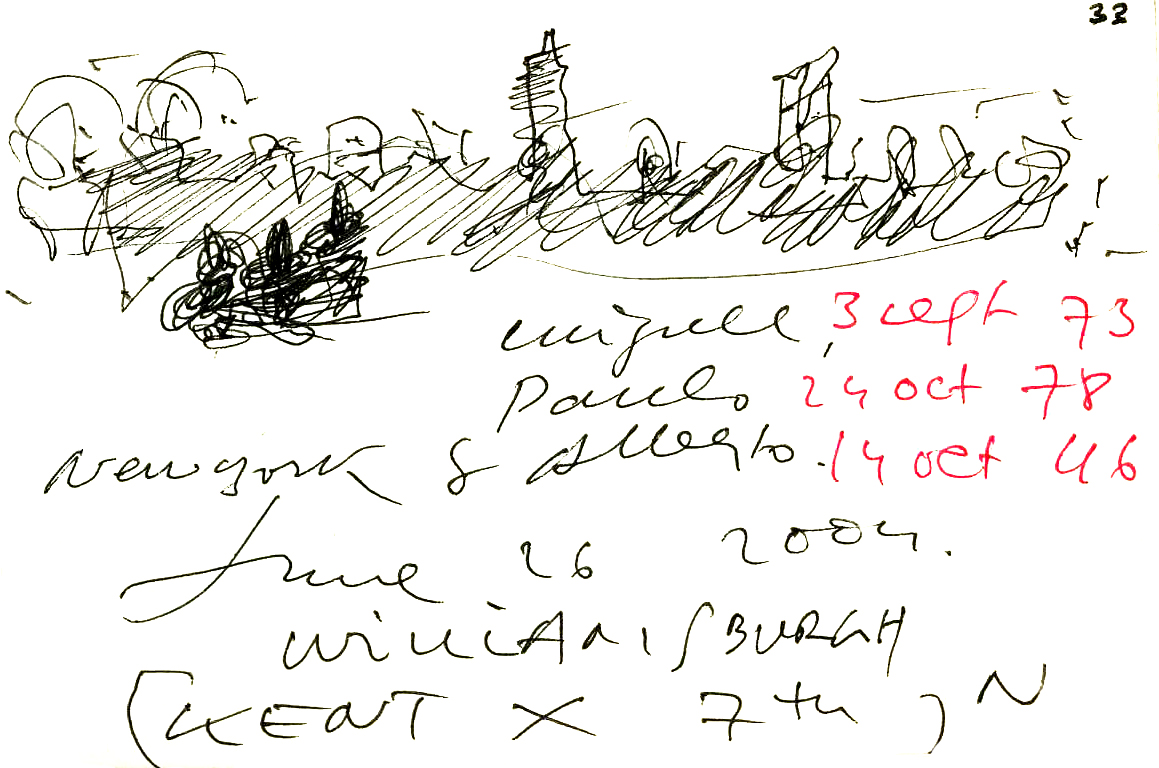 33
miguel, 3 sept 73
Paulo 24 oct 78
New york & Alberto. 14 oct 46
June 26 2004.
WilliAMSBURGH
(KENT X 7th) N